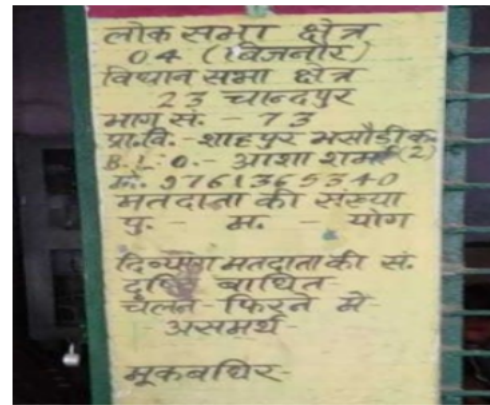 लोक सभा क्षेत्र
04 (बिजनौर)
विधान सभा क्षेत्र
23 चान्दपुर
भाग सं. - 73
प्रा.वि. - शाहपुर भसौडी क.(2)
B.L.O. - आशा शर्मा
मो. 9761365340
मतदाता की संख्या
पु. - म. - योग
दिव्यांग मतदाता की सं.
दृष्टि बाधित -
चलने - फिरने मे
असमर्थ -
मूकबधिर -